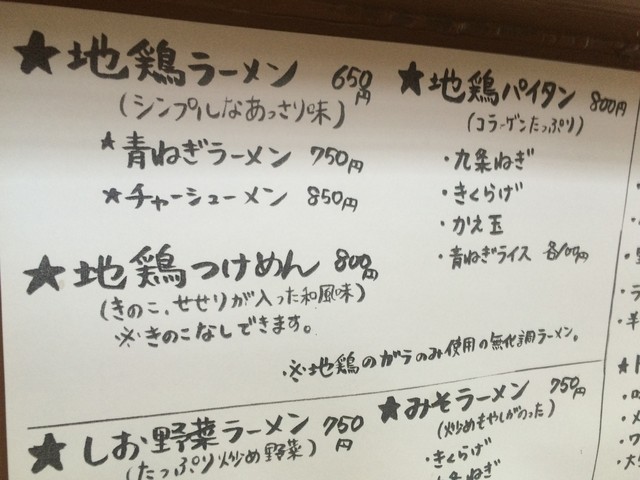 ★地鶏ラーメン 650円
(シンプルなあっさり味)
★青ねぎラーメン 750円
★チャーシューメン 850円
★地鶏つけめん 800円
(きのこ、せせりが入った和風味)
※きのこなしできます。
★地鶏パイタン 800円
(コラーゲンたっぷり)
・九条ねぎ
・きくらげ
・かえ玉
・青ねぎライス 各100円
※地鶏のガラのみ使用の無化調ラーメン。
★しお野菜ラーメン 750円
(たっぷり炒め野菜)
★みそラーメン 750円
(炒めもやしがのった)
・きくらげ